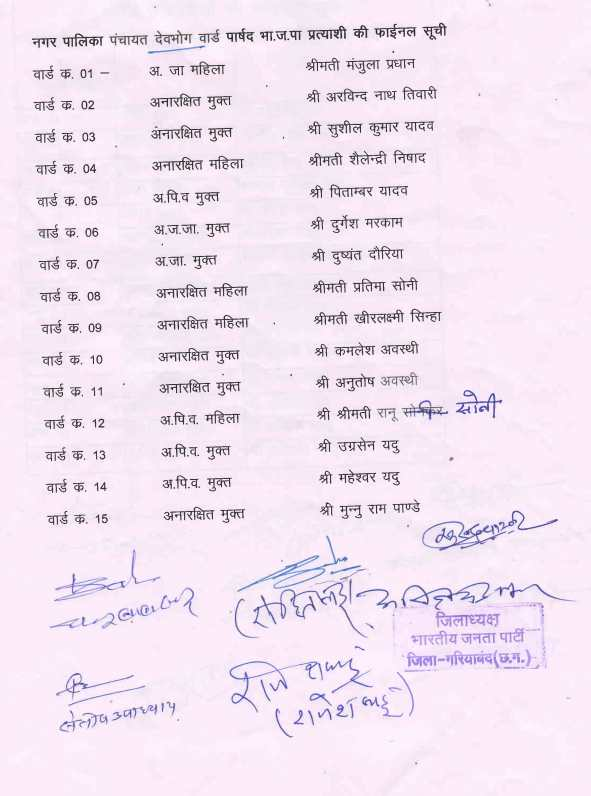 नगर पालिका पंचायत देवभोग वार्ड पार्षद भा.ज.पा प्रत्याशी की फाईनल सूची
वार्ड क. 01 – अ. जा महिला श्रीमती मंजुला प्रधान
वार्ड क. 02 अनारक्षित मुक्त श्री अरविन्द नाथ तिवारी
वार्ड क. 03 अनारक्षित मुक्त श्री सुशील कुमार यादव
वार्ड क. 04 अनारक्षित महिला श्रीमती शैलेन्द्री निषाद
वार्ड क. 05 अ.पि.व मुक्त श्री पिताम्बर यादव
वार्ड क. 06 अ.ज.जा. मुक्त श्री दुर्गेश मरकाम
वार्ड क. 07 अ.जा. मुक्त श्री दुष्यंत दौरिया
वार्ड क. 08 अनारक्षित महिला श्रीमती प्रतिमा सोनी
वार्ड क. 09 अनारक्षित महिला श्रीमती खीरलक्ष्मी सिन्हा
वार्ड क. 10 अनारक्षित मुक्त श्री कमलेश अवस्थी
वार्ड क. 11 अनारक्षित मुक्त श्री अनुतोष अवस्थी
वार्ड क. 12 अ.पि.व. महिला श्री श्रीमती रानू सोनी
वार्ड क. 13 अ.पि.व. मुक्त श्री उग्रसेन यदु
वार्ड क. 14 अ.पि.व. मुक्त श्री महेश्वर यदु
वार्ड क. 15 अनारक्षित मुक्त श्री मुन्नु राम पाण्डे
जिलाध्यक्ष
भारतीय जनता पार्टी
जिला-गरियाबंद(छ.ग.)